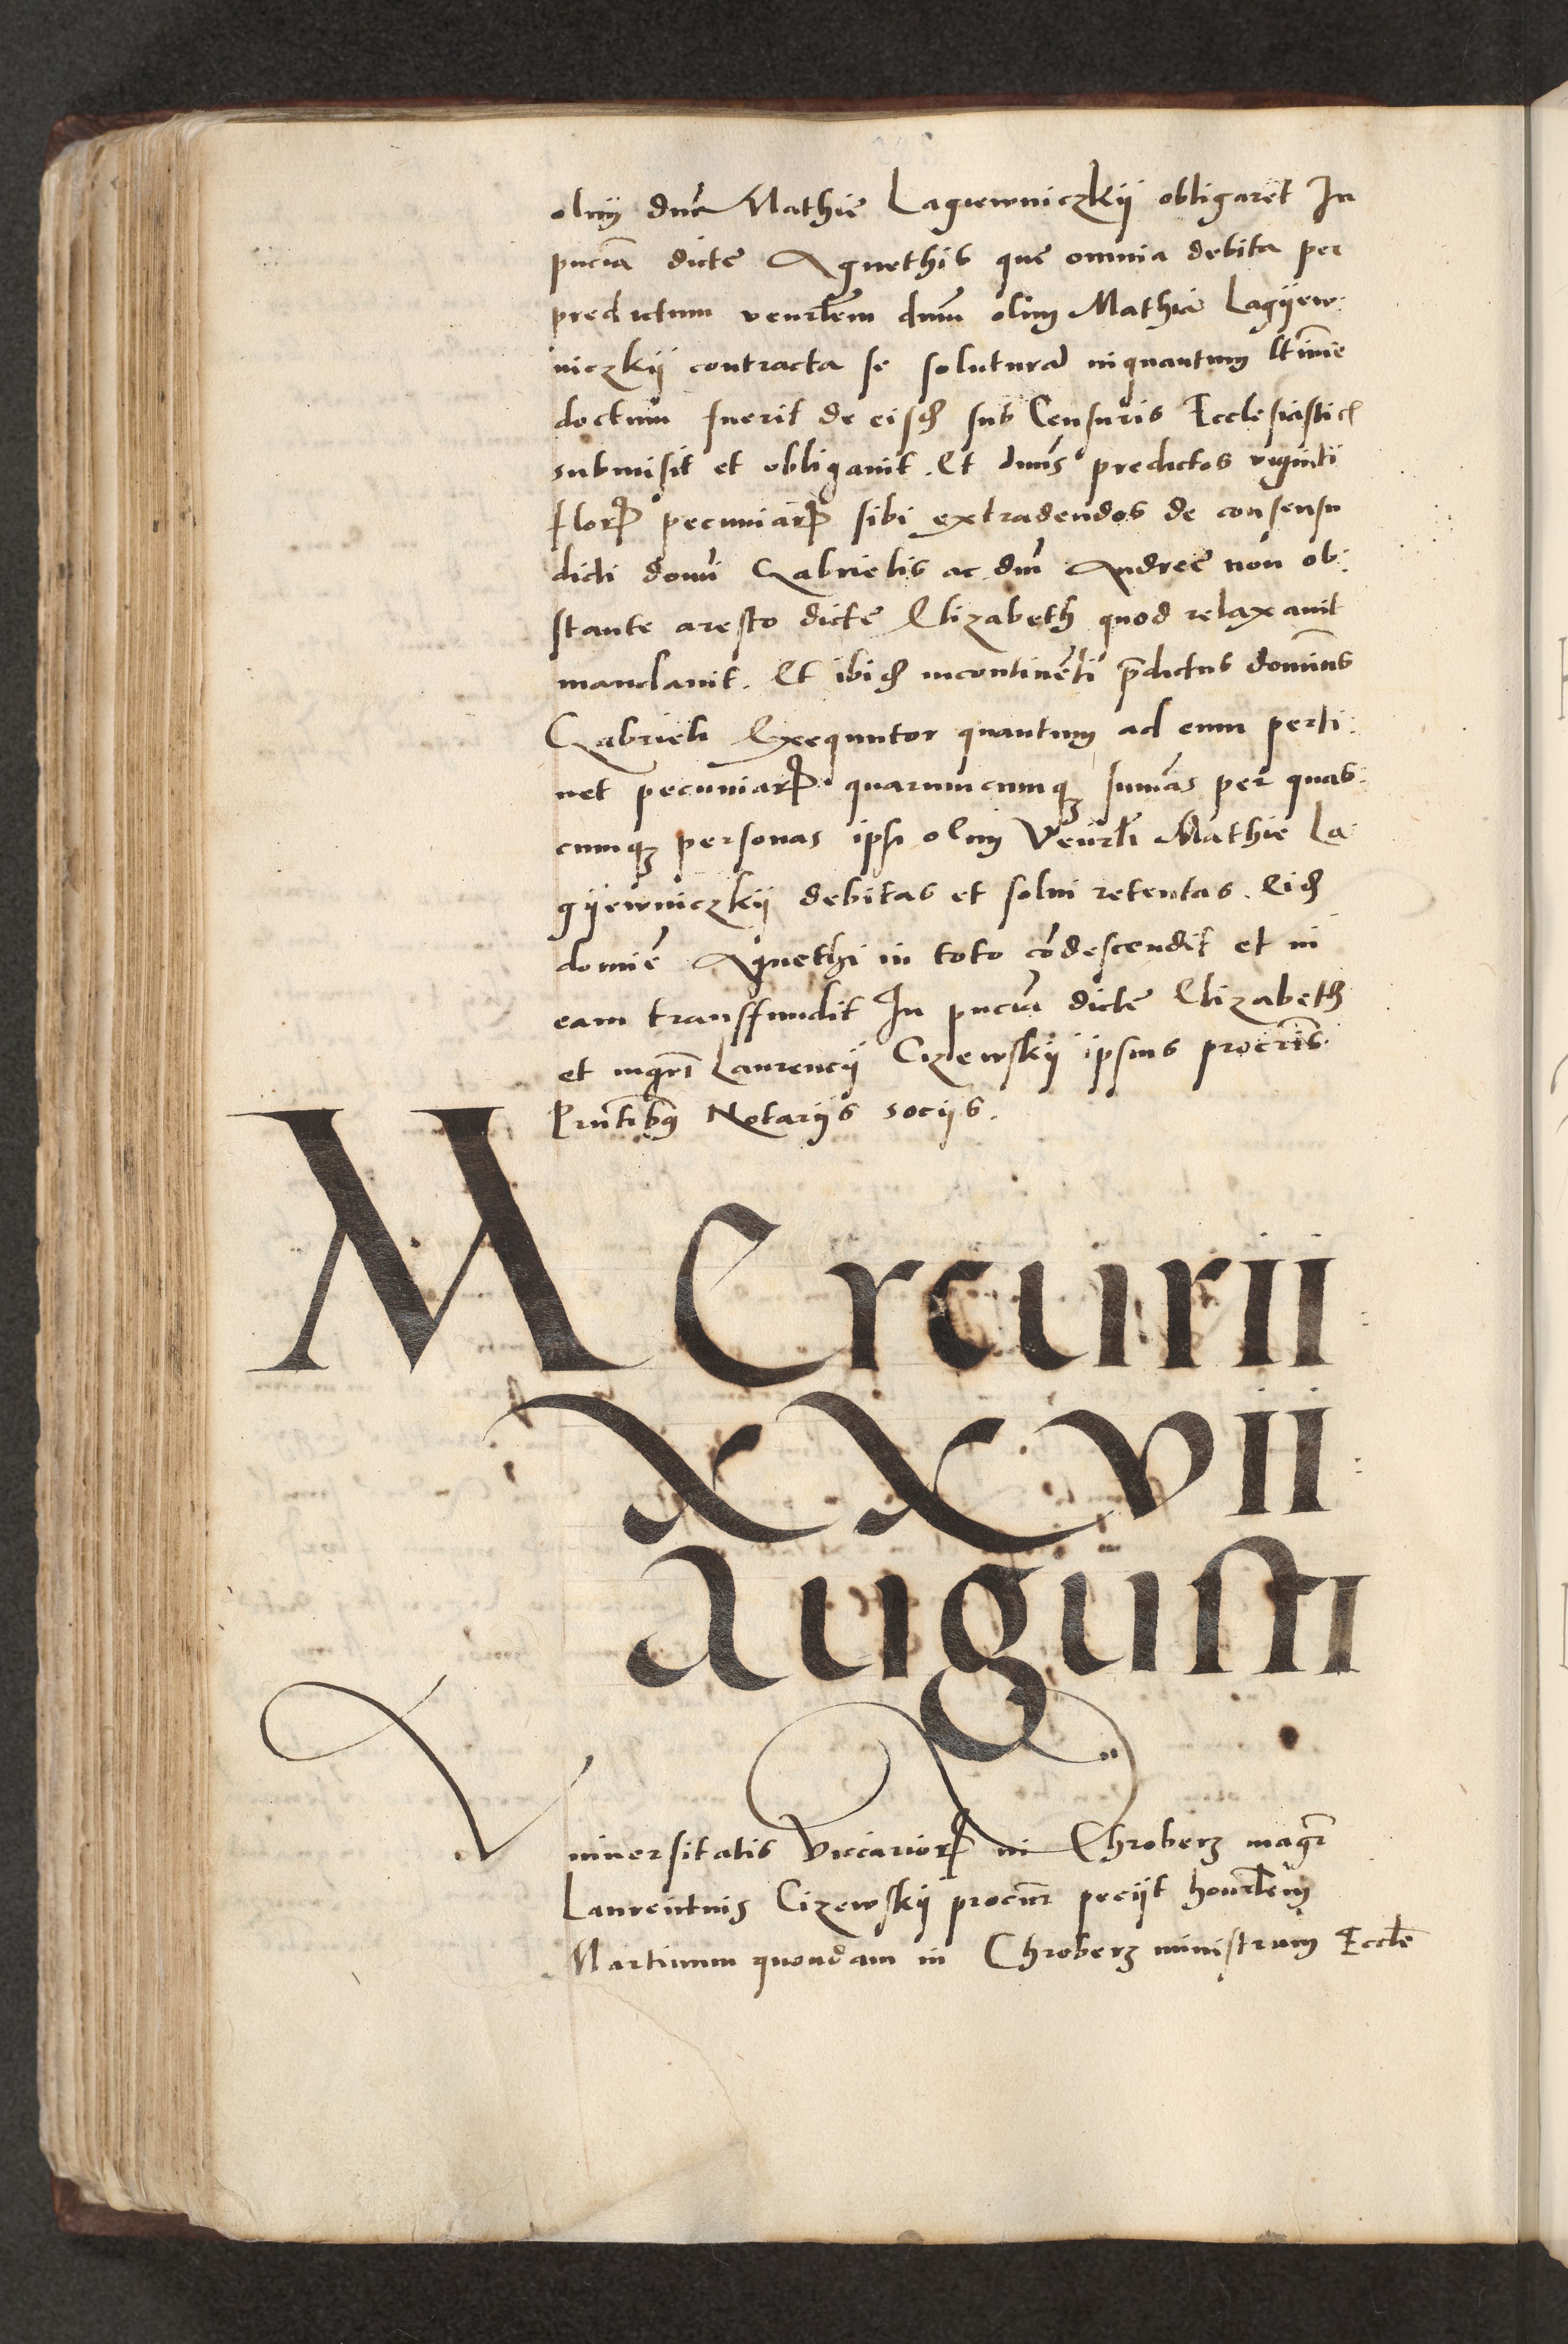 olim dnē Mathie Lagiewniczkij obligaret In
pncia dicte Agnethis que omnia debita per
predictum venrlem dnm olim Mathiā Lagyew:
niczkij contracta se soluturā inquantum ltime
doctum fuerit de eisd sub Censuris Ecclesiasticis
submisit et obligavit. Et dnus predictos viginti
flor pecuniar sibi extradendos de consensu
dicti domi Gabrielis ac dni Andree non ob:
stante aresto dicte Elizabeth quod relaxavit
mandavit. Et ibid incontinēti pdictus dominus
Gabrieli Exequutor quantum ad eum perti:
net pecuniar quarumcumq sumas per quas:
cumq personas ipsi olim Venrli Mathie La:
gyewniczkij debitas et solui retentas. Eid
domine Agnethi in toto cōdescendit et in
eam transffundit In pncia dicte Elizabeth
et mgri Laurencij Cizewskij ipsius procris
Prntibus Notarijs socijs.
MErcurii
XXVII
Augusti
Vniversitatis viccarior in Chroberz magr
Laurentius Cizewskij procur peciit honrlem
Martinum quondam in Chroberz ministrum Eccle